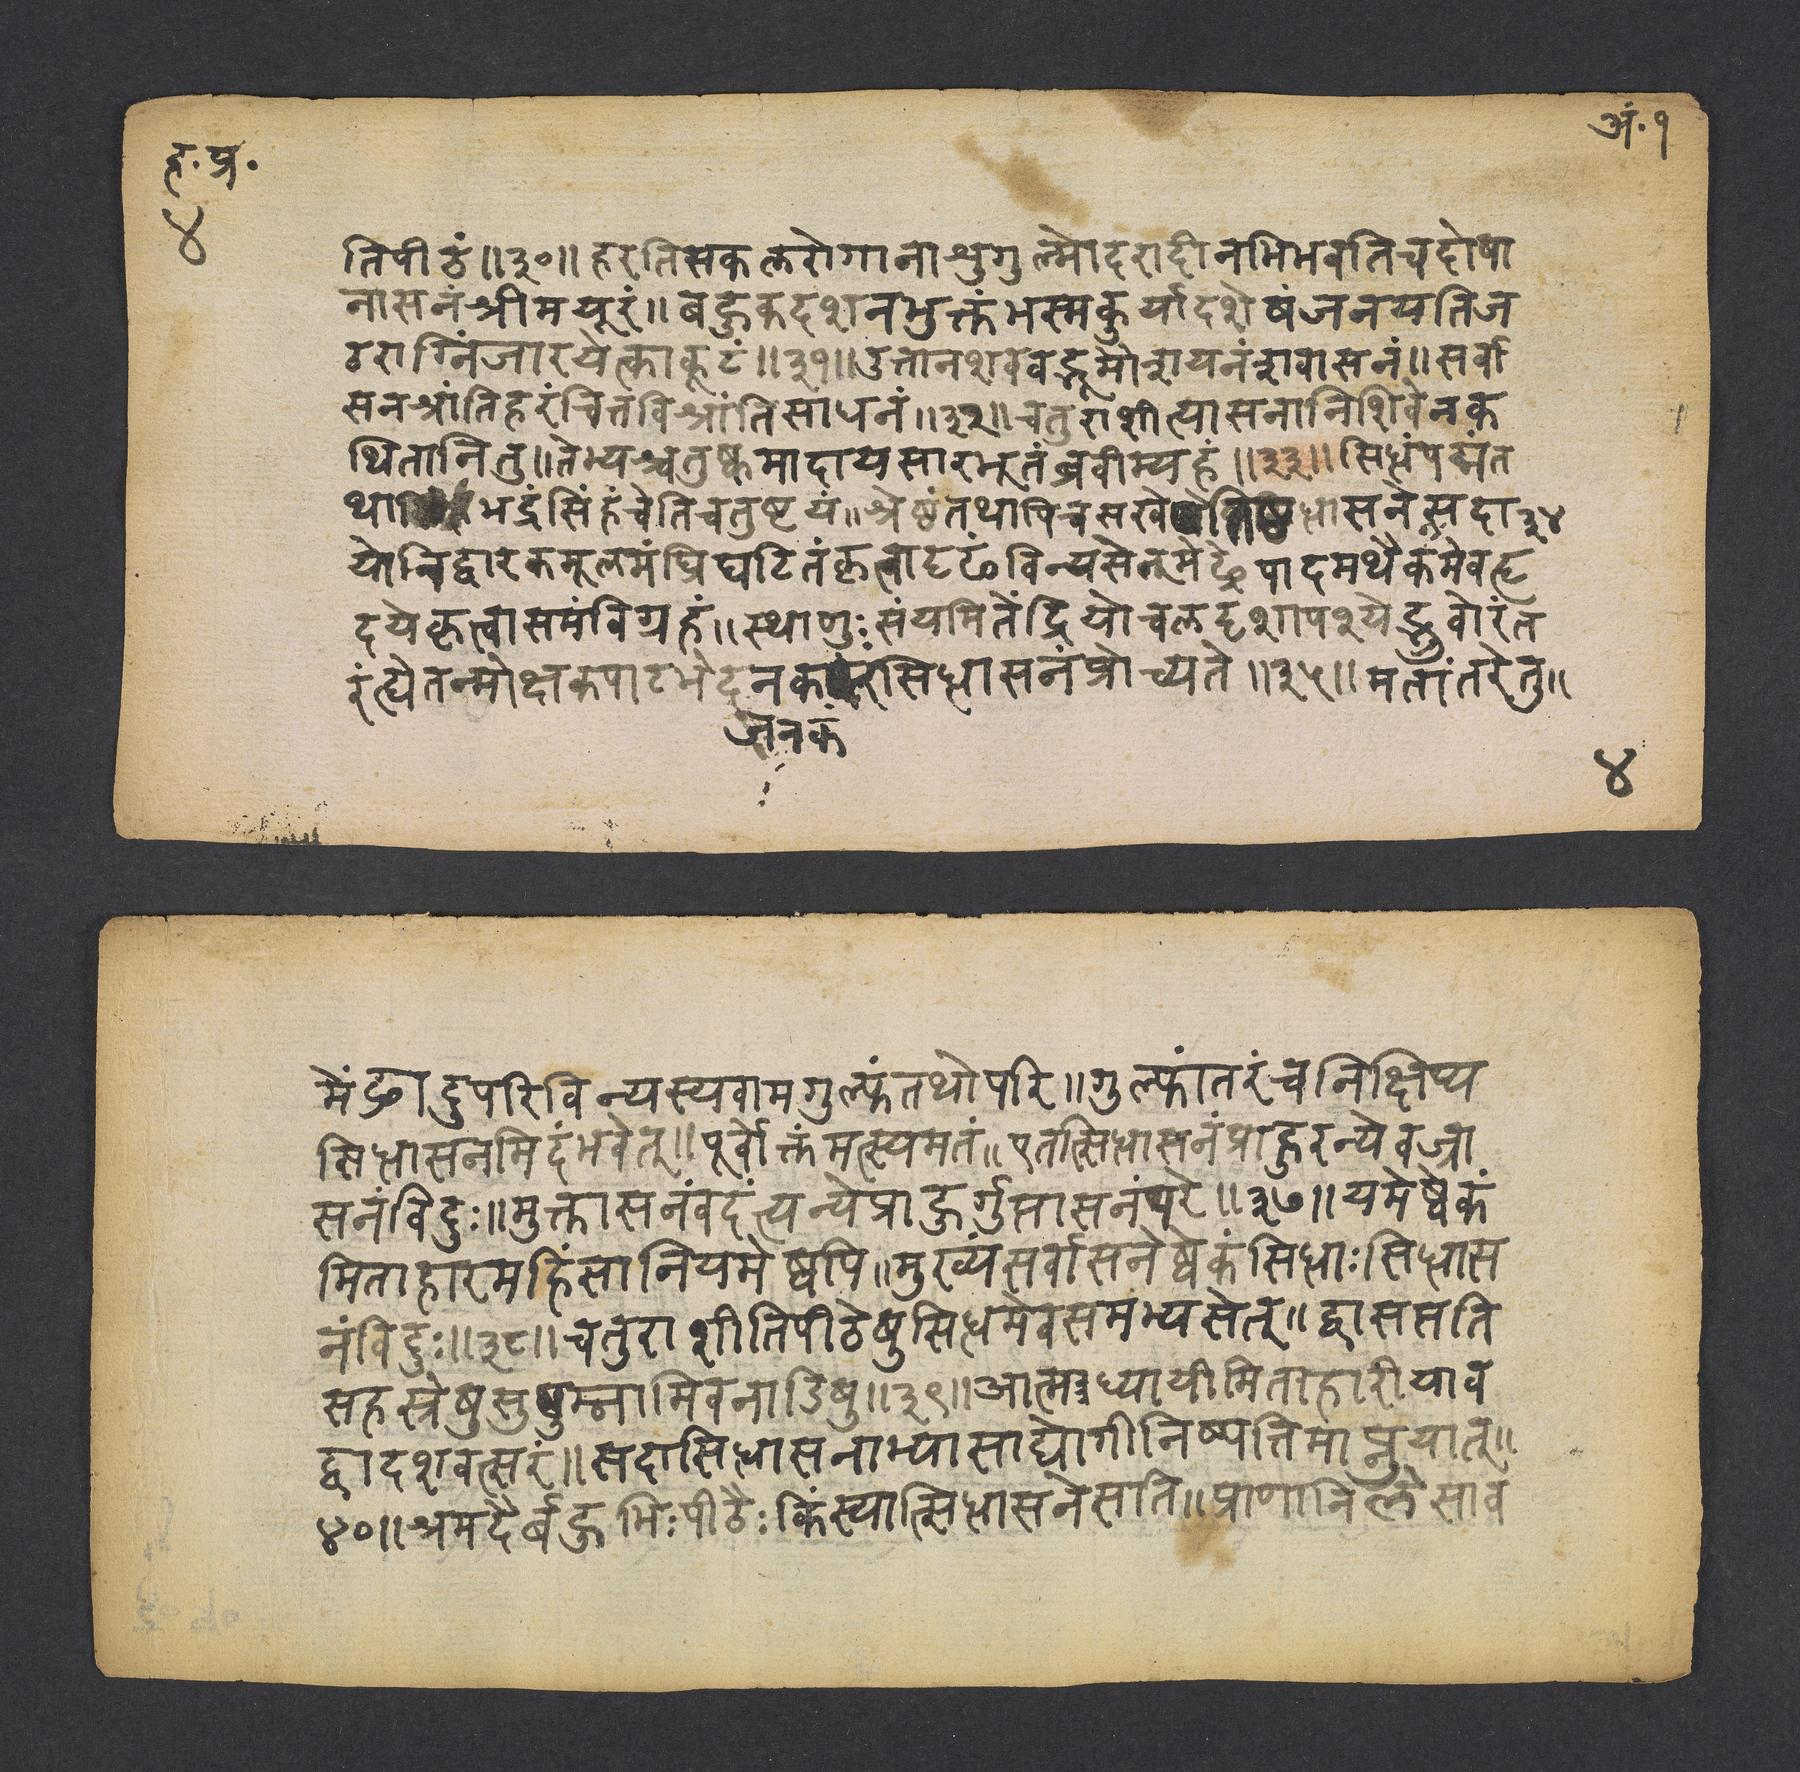 ह॰ प्र॰
अं॰ १
४
तिपीठं॥३०॥ हरतिसकलरोगानाश्रुगुल्मोदरादीनभिभवतिचदोषा
नासनंश्रीमयूरं॥ बहुकदशनभुक्तंभस्मकुर्यादशेषंजनयतिज
ठराग्निंजारयेत्कालकूटं॥३१॥उत्तानशववद्भूमौशयनंशवासनं॥सर्वा
सनश्रांतिहरंचित्तविश्रांतिसाधनं॥३२॥चतुराशीत्यासनानिशिवेनक
थितानितु॥तेभ्यश्चतुष्कमादायसारभूतंब्रवीम्यहं॥३३॥सिध्धंपद्मंत
था भद्रंसिंहंचेतिचतुष्टयं॥श्रेष्ठंतथापिचसखे ध्धासनेसदा३४
योनिद्वारकमूलमंघ्रिघटितंकृत्वादृढंविन्यसेन्मेढ्रेपादमथैकमेवहृ
दयेकृत्वासमंविग्रहं॥स्थाणुःसंयमितेंद्रियोचलदृशापश्येद्भ्रुवोरंत
रंह्येतन्मोक्षकपाटभेदनक रंसिध्धासनंप्रोच्यते॥३५॥मतांतरेतु॥
जनकं
४
मेंढ्रादुपरिविन्यस्यवामगुल्फंतथोपरि॥गुल्फांतरंचनिक्षिप्य
सिध्धासनमिदंभवेत्॥पूर्वोक्तंमत्स्यमतं॥एतत्सिध्धासनंप्राहुरन्येवज्रा
सनंविदुः॥मुक्तासनंवदंत्यन्येप्राहुर्गुप्तासनंपरे॥३७॥यमेष्वेकं
मिताहारमहिंसानियमेष्वपि॥मुख्यंसर्वासनेष्वेकंसिध्धाःसिध्धास
नंविदुः॥३८॥चतुराशीतिपीठेषुसिध्धमेवसमभ्यसेत्॥द्वासप्तति
सहस्त्रेषुसुषुम्नामिवनाडिषु॥३९॥आत्मध्यायीमिताहारीयाव
द्वादशवत्सरं॥सदासिध्धासनाभ्यासाद्योगीनिष्पत्तिमाप्नुयात्॥
४०॥श्रमदैर्बहुभिःपीठैःकिंस्यात्सिध्धासनेसति॥प्राणानिलेसाव